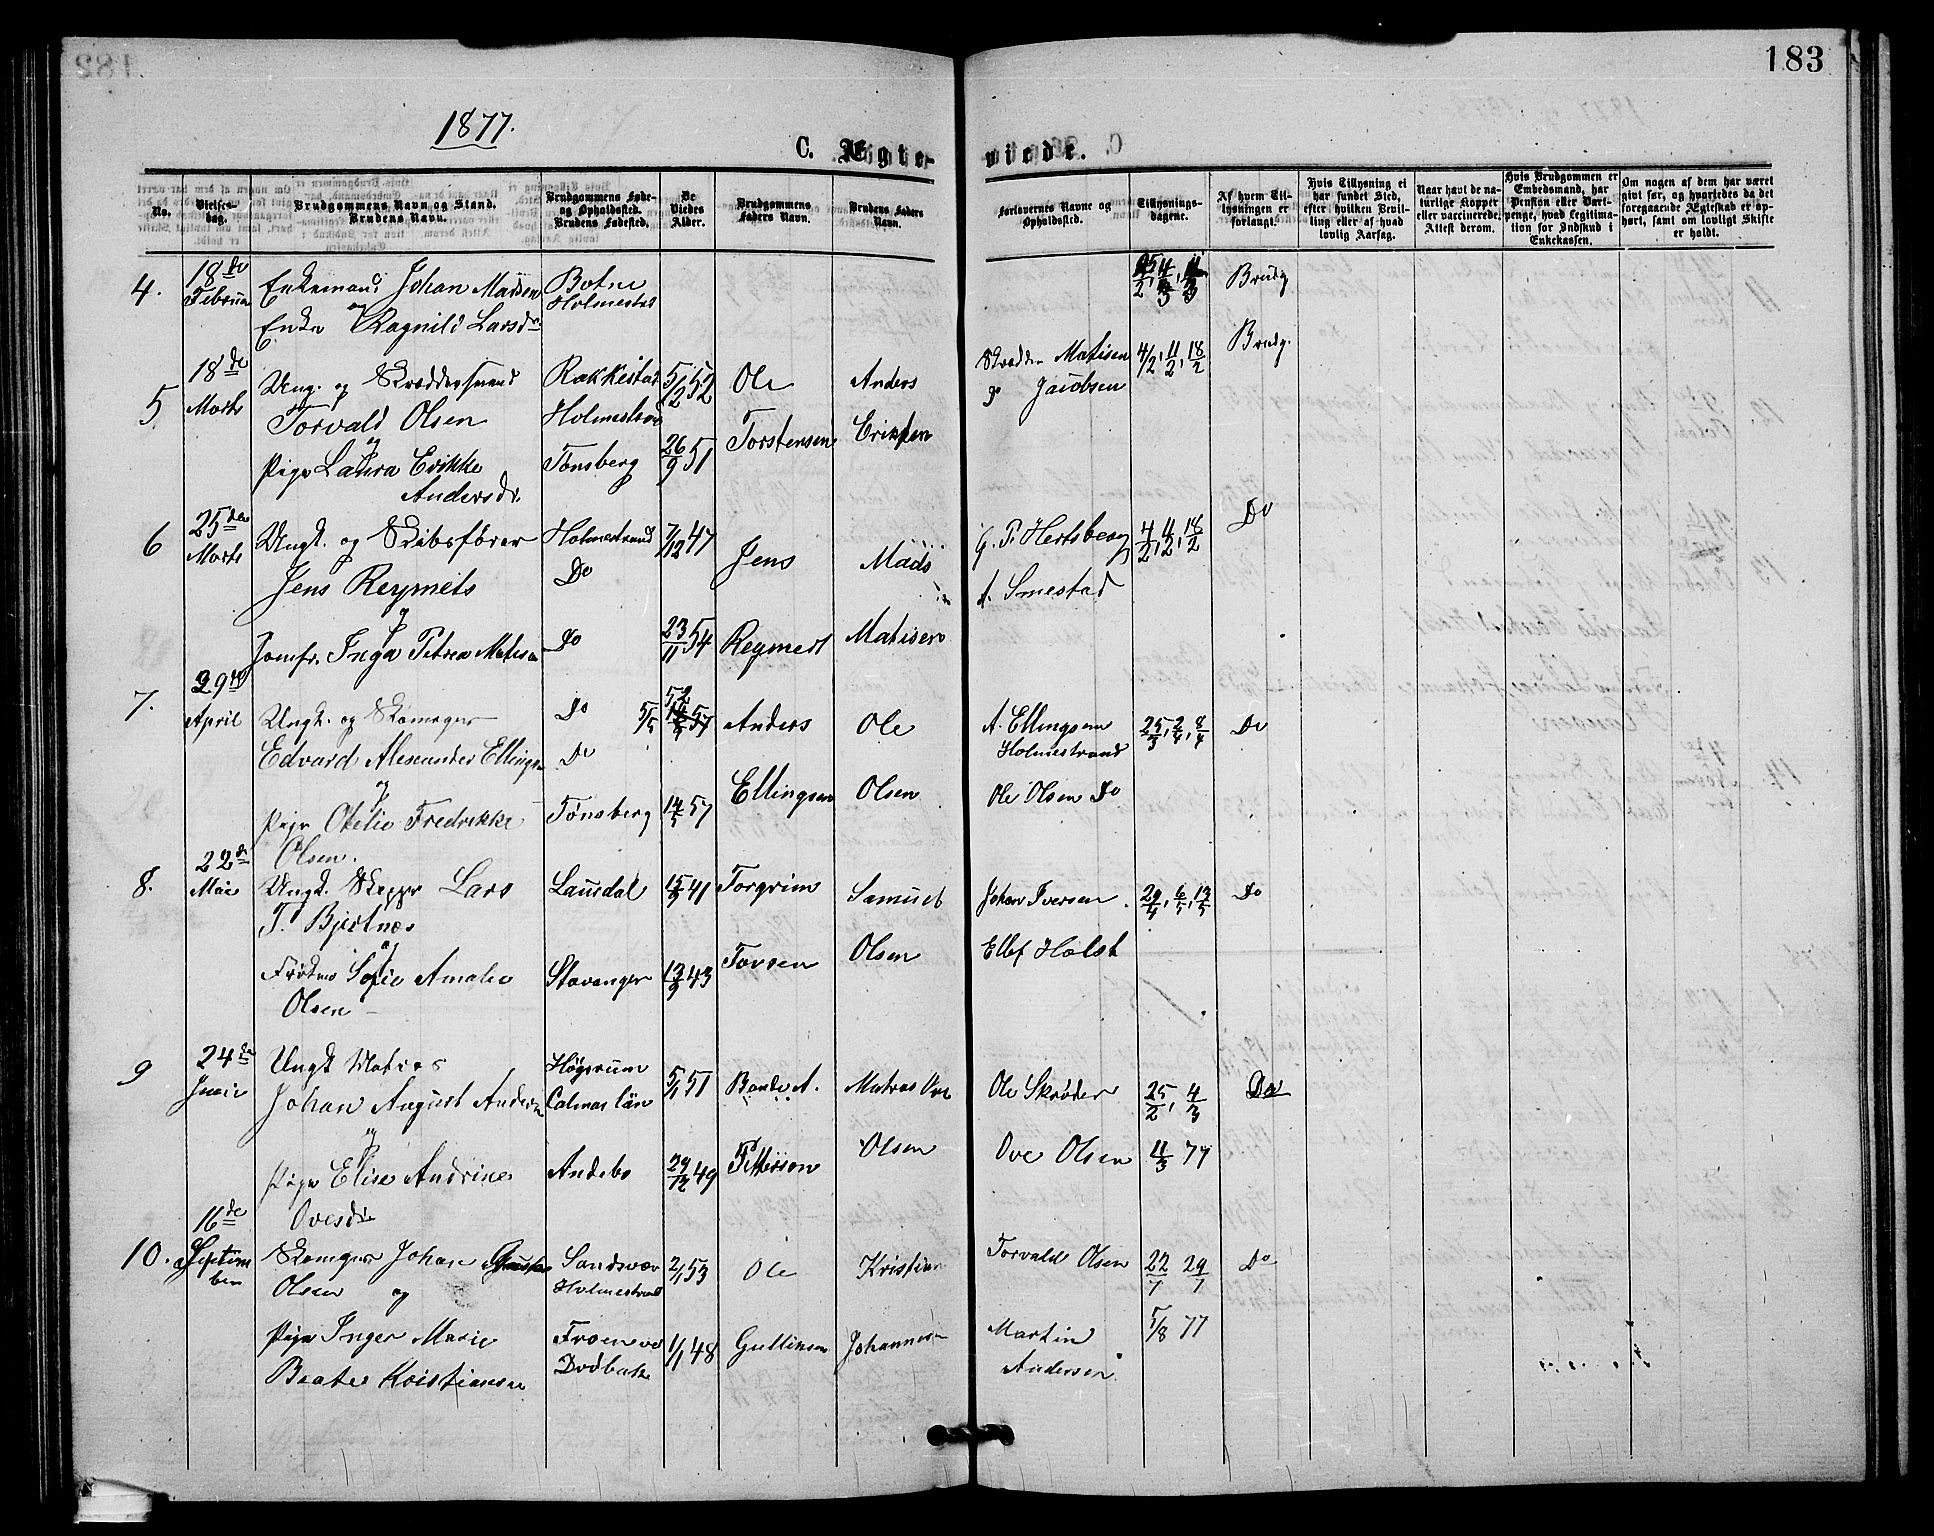 183
1877.
C. Ægte-
viede.
No.
Vielses-
dag.
Brudgommens Navn og Stand.
Brudens Navn.
Brudgommens Føde-
og Opholdssted.
Brudens Fødested.
De
Viedes
Alder.
Brudgommens
Faders Navn.
Brudens Faders
Navn.
Forlovernes Navne og
Opholdssted.
Tillysnings-
dagene.
Af hvem Til-
lysningen er
forlangt.
Hvis Tillysning ei
har fundet Sted,
efter hvilken Bevil-
ling eller af hvad
lovlig Aarsag.
Naar havt de na-
turlige Kopper
eller vaccinerede,
Attest derom.
Hvis Brudgommen er
Embedsmand, har
Pension eller Vart-
penge, hvad Legitima-
tion for Indskud i
Enkekassen.
Om nogen af dem har været
givt før, og hvorledes da det
foregaaende Ægteskab er op-
hørt, samt om lovligt Skifte
er holdt.
4.
18de
Februar
Enkemand Johan Madsen
og
Enke Ragnild Larsdr
Botne
Holmestrad
Brudg
5
18de
Marts
Ung. og Skræddersvend
Torvald Olsen
og
Pige Laura Erikke
Andersdr.
Rakkestad
Holmestrand
Tønsberg
5/12 52
26/9 51
Ole
Torstensen
Anders
Eriksen
Skrædder Matisen
Jacobsen
4/2, 11/2, 18/2
Brudg.
6
25den
Marts
Ungk. og Skibsfører
Jens Reymets
og
Jomfr. Inga Petrea Matisen
Holmestrand
Do
Do
7/12 47
23/11 54
Jens
Reymert
Mads
Matisen
G. P. Hertsberg
A. Smestad
4/2, 11/2, 18/2
Do
7.
29de
April
Ungk. og Skomager
Edvard Alexander Ellingsen
og
Pige Otelie Fredrikke
Olsen.
Do
Do
Tønsberg
5/5 52
14/5 57
Anders
Ellingsen
Ole
Olsen
A. Ellingsen
Holmestrand
Ole Olsen Do
25/3, 2/4, 8/4
Do
8.
22de
Mai
Ungk. Skipper Lars
T. Bjertnæs
og
Frøken Sofie Amalie
Olsen
Lausdal
Stavanger
15/9 41
13/9 43
Torgrim
Torsen
Samuel
Olsen
Johan Iversen
Ellef Holst
29/4, 6/5, 13/5
Do
9
24de
Juni
Ungk Matros
Johan August Andersen
og
Pige Elise Andrine
Ovesdr
Högsrum
Calmar län
Andebo
5/1 51
29/12 49
Bonde A.
Pettersson
Matros Ove
Olsen
Ole Skrøder
Ove Olsen
25/2, 4/3
11/3 77
Do
10.
16de
Septem
ber
Skomager Johan Gustav
Olsen og
Pige Inger Marie
Beate Kristiansen
Sandsvær
Holmestrand
2/1 53
1/1 48
Ole
Gullinsen
Kristian
Johannes
Torvald Olsen
Martin
Andersen
22/7 29/7
5/8 77
Do